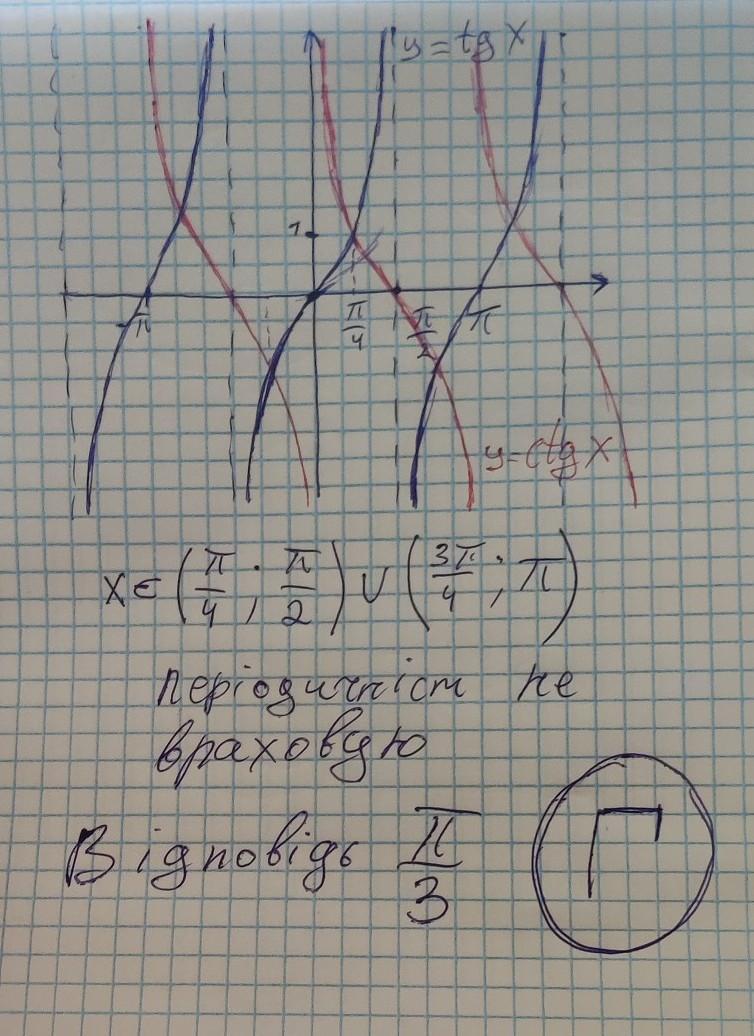 y = tg x
1
-π π/4 π/2 π
y = ctg x
x ∈ (π/4 ; π/2) ∪ (3π/4 ; π)
періодичність не
враховую
Відповідь π/3 Г